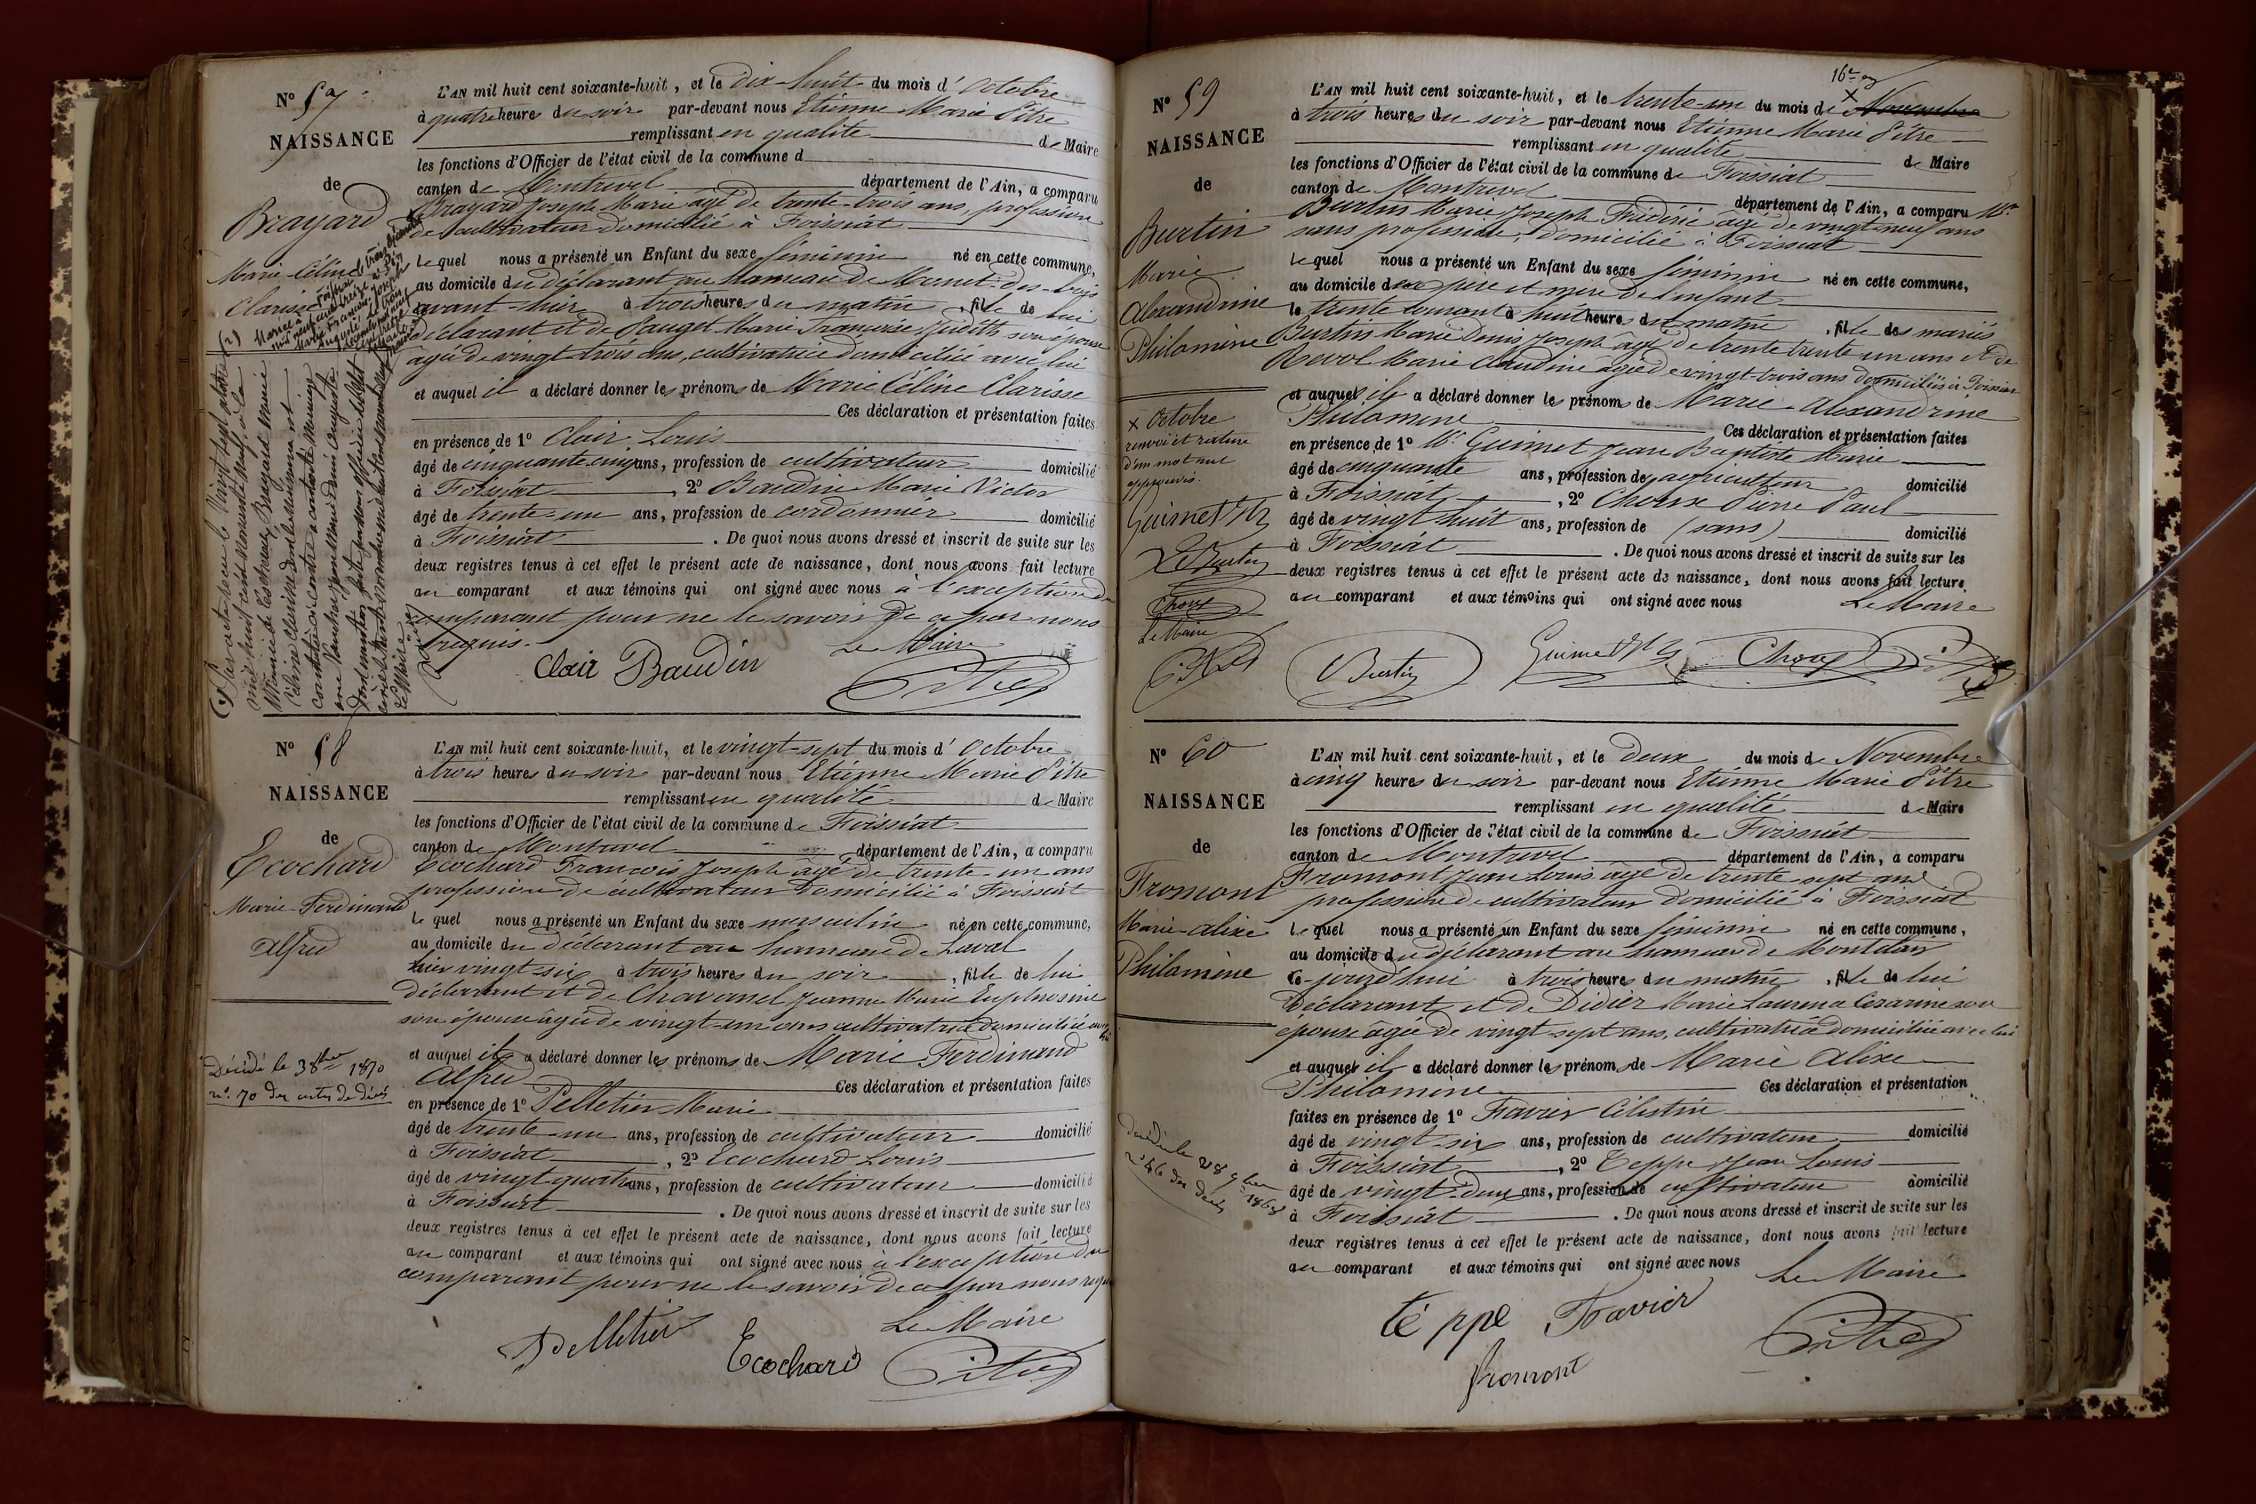 N° 57
NAISSANCE
de
Brayard
Marie-Céline
Clarisse
L'AN mil huit cent soixante-huit, et le dix-huit du mois d'Octobre
à quatre heures du soir par-devant nous Etienne Marie Pitre
remplissant en qualité de Maire
les fonctions d'Officier de l'état civil de la commune d
canton de Montrevel département de l'Ain, a comparu
Brayard Joseph Marie âgé de trente-trois ans, profession
de cultivateur domicilié à Foissiat
Lequel nous a présenté un Enfant du sexe féminin né en cette commune,
au domicile du déclarant au hameau de
avant-hier à trois heures du matin, fille de lui
déclarant et de Marie Françoise Judith son épouse
âgée de vingt-trois ans, cultivatrice domiciliée avec lui
et auquel il a déclaré donner les prénoms de Marie Céline Clarisse
Ces déclaration et présentation faites
en présence de 1° Clair Louis
âgé de cinquante cinq ans, profession de cultivateur domicilié
à Foissiat, 2° Baudin Marie Victor
âgé de trente-un ans, profession de cordonnier domicilié
à Foissiat. De quoi nous avons dressé et inscrit de suite sur les
deux registres tenus à cet effet le présent acte de naissance, dont nous avons fait lecture
au comparant et aux témoins qui ont signé avec nous à l'exception du
comparant pour ne le savoir de ce par nous
requis.
Le Maire
Clair Baudin Pitre
N° 58
NAISSANCE
de
Ecochard
Marie-Ferdinand
Alfred
Décédé le 3 8bre 1870
n° 70 des actes de décès
L'AN mil huit cent soixante-huit, et le vingt-sept du mois d'Octobre
à trois heures du soir par-devant nous Etienne Marie Pitre
remplissant en qualité de Maire
les fonctions d'Officier de l'état civil de la commune de Foissiat
canton de Montrevel département de l'Ain, a comparu
Ecochard François Joseph âgé de trente-un ans
profession de cultivateur domicilié à Foissiat
Le quel nous a présenté un Enfant du sexe masculin né en cette commune,
au domicile du déclarant au hameau de Laval
hier vingt-six à trois heures du soir, fils de lui
déclarant et de Chavanel Jeanne Marie Euphrosine
son épouse âgée de vingt-un ans cultivatrice domiciliée avec lui
et auquel il a déclaré donner les prénoms de Marie Ferdinand
Alfred Ces déclaration et présentation faites
en présence de 1° Pelletier Marie
âgé de trente-un ans, profession de cultivateur domicilié
à Foissiat, 2° Ecochard Louis
âgé de vingt quatre ans, profession de cultivateur domicilié
à Foissiat. De quoi nous avons dressé et inscrit de suite sur les
deux registres tenus à cet effet le présent acte de naissance, dont nous avons fait lecture
au comparant et aux témoins qui ont signé avec nous à l'exception du
comparant pour ne le savoir de ce par nous requis
Le Maire
Pelletier Ecochard Pitre
N° 59
NAISSANCE
de
Burtin
Marie
Alexandrine
Philomène
x Octobre
renvoi et rature
d'un mot nul
approuvés.
Guimet
Burtin
Chorre
Le Maire
Pitre
L'AN mil huit cent soixante-huit, et le trente-un du mois de x Novembre
à trois heures du soir par-devant nous Etienne Marie Pitre
remplissant en qualité de Maire
les fonctions d'Officier de l'état civil de la commune de Foissiat
canton de Montrevel département de l'Ain, a comparu Mr
Burtin Marie Joseph Frédéric âgé de vingt-neuf ans
sans profession, domicilié à Foissiat
Lequel nous a présenté un Enfant du sexe féminin né en cette commune,
au domicile des père et mère de l'enfant
le trente courant à huit heures du matin, fille des mariés
Burtin Marie Denis Joseph âgé de trente trente un ans et de
Revol Marie Claudine âgée de vingt-trois ans domiciliés à Foissiat
et auquel il a déclaré donner les prénoms de Marie-Alexandrine
Philomène Ces déclaration et présentation faites
en présence de 1° Mr Guimet Jean Baptiste Marie
âgé de cinquante ans, profession de agriculteur domicilié
à Foissiat, 2° Chorre Pierre Paul
âgé de vingt huit ans, profession de (sans) domicilié
à Foissiat. De quoi nous avons dressé et inscrit de suite sur les
deux registres tenus à cet effet le présent acte de naissance, dont nous avons fait lecture
au comparant et aux témoins qui ont signé avec nous Le Maire
Burtin Guimet Chorre Pitre
N° 60
NAISSANCE
de
Fromont
Marie-Alixe
Philomène
décédée le 28 9bre 1868
n° 46 des décès
L'AN mil huit cent soixante-huit, et le deux du mois de Novembre
à cinq heures du soir par-devant nous Etienne Marie Pitre
remplissant en qualité de Maire
les fonctions d'Officier de l'état civil de la commune de Foissiat
canton de Montrevel département de l'Ain, a comparu
Fromont Jean Louis âgé de trente-sept ans
profession de cultivateur domicilié à Foissiat
Le quel nous a présenté un Enfant du sexe féminin né en cette commune,
au domicile du déclarant au hameau de Montalan
ce-jourd'hui à trois heures du matin, fille de lui
déclarant et de Didier Marie Laurence Césarine son
épouse âgée de vingt-sept ans, cultivatrice domiciliée avec lui
et auquel il a déclaré donner les prénoms de Marie Alixe
Philomène Ces déclaration et présentation
faites en présence de 1° Favier Célestin
âgé de vingt-six ans, profession de cultivateur domicilié
à Foissiat, 2° Teppe Jean Louis
âgé de vingt-deux ans, profession de cultivateur domicilié
à Foissiat. De quoi nous avons dressé et inscrit de suite sur les
deux registres tenus à cet effet le présent acte de naissance, dont nous avons fait lecture
au comparant et aux témoins qui ont signé avec nous Le Maire
téppe Favier Pitre
fromont